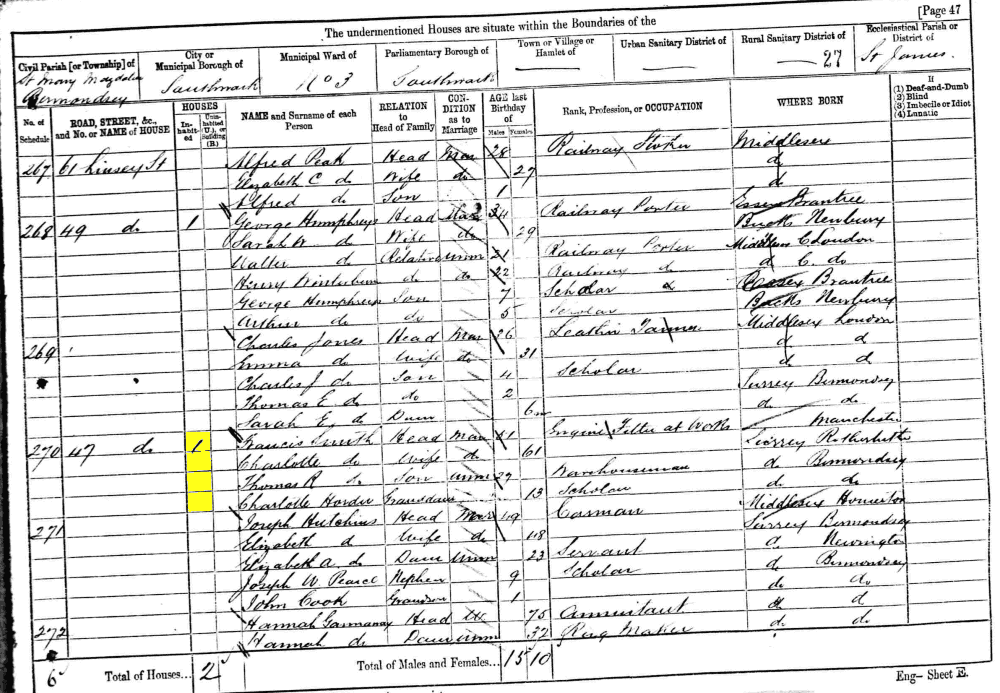 [Page 47
The undermentioned Houses are situate within the Boundaries of the
Civil Parish [or Township] of City or Municipal Borough of Municipal Ward of Parliamentary Borough of Town or Village or Hamlet of Urban Sanitary District of Rural Sanitary District of Ecclesiastical Parish or District of
St Mary Magdalen Bermondsey Southwark No 3 Southwark 27 St James
No. of Schedule ROAD, STREET, &c., and No. or NAME of HOUSE HOUSES Inhabited Uninhabited (U.), or Building (B.) NAME and Surname of each Person RELATION to Head of Family CONDITION as to Marriage AGE last Birthday of Males Females Rank, Profession, or OCCUPATION WHERE BORN If (1) Deaf-and-Dumb (2) Blind (3) Imbecile or Idiot (4) Lunatic
267 61 Linsey St Alfred Peak Head Mar 28 Railway Stoker Middlesex
Elizabeth C do Wife do 27 d
Alfred do Son 1 d
268 49 do 1 George Humphreys Head Mar 34 Railway Porter Essex Braintree
Sarah do Wife do 29 Bucks Newbury
Walter do Relative Unm 21 Railway Porter London
Henry do do 22 Railway do d C. do
George Humphreys Son 7 Scholar Braintree
Arthur do do 5 Scholar Newbury
269 Charles Jones Head Mar 26 Leather Tanner Middlesex London
Emma do Wife do 31 d d
Charles J do Son 4 Scholar d d
Thomas E. do do 2 Surrey Bermondsey
Sarah E. do Daur 6m do do
270 47 do 1 Francis Smith Head Mar Engine Fitter at Works Manchester
Charlotte do Wife do 61 Surrey Rotherhithe
Thomas R do Son Unm 27 Warehouseman d Bermondsey
Charlotte Granddaur 13 Scholar do do
271 Joseph Hutchins Head Mar 49 Carman Middlesex Homerton
Elizabeth d Wife do 48 Surrey Bermondsey
Elizabeth A. do Daur Unm 23 Servant d Newington
Joseph W Pearce Nephew 9 Scholar d Bermondsey
John Cook Grandson 1 do do
272 Hannah Head W 75 Annuitant d d
Hannah do Daur Unm 32 Maker do do
6 Total of Houses... 2 Total of Males and Females... 15 10
Eng- Sheet E.